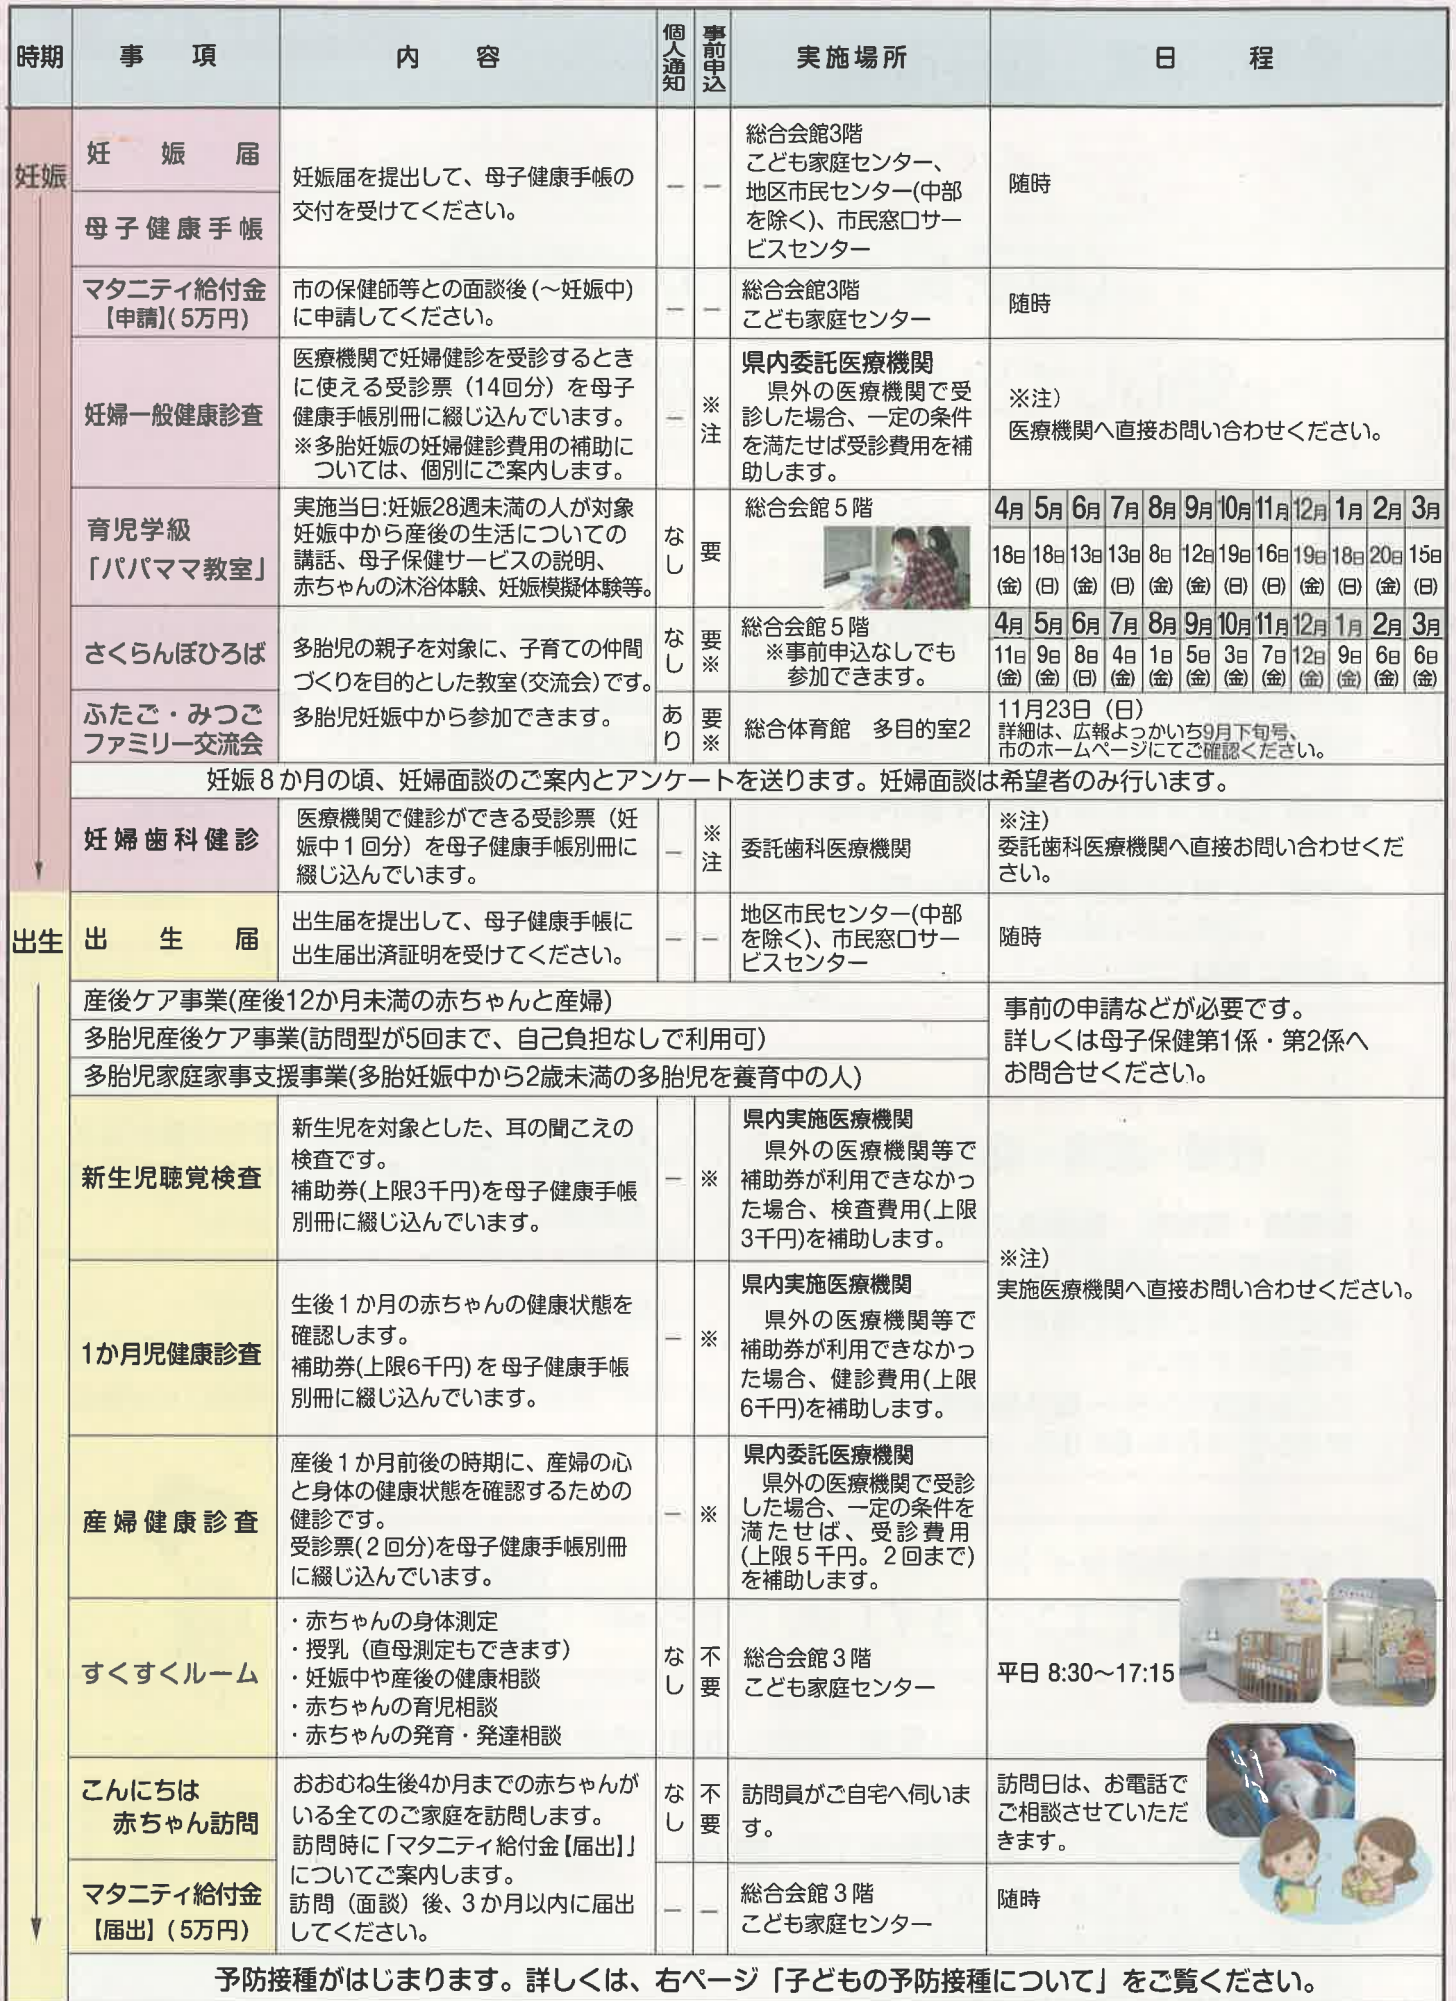 時期 事項 内容 個人通知 事前申込 実施場所 日程
妊娠
妊娠届
母子健康手帳
妊娠届を提出して、母子健康手帳の
交付を受けてください。
— —
総合会館3階
こども家庭センター、
地区市民センター(中部
を除く)、市民窓口サー
ビスセンター
随時
マタニティ給付金
【申請】(5万円)
市の保健師等との面談後(～妊娠中)
に申請してください。
— —
総合会館3階
こども家庭センター
随時
妊婦一般健康診査
医療機関で妊婦健診を受診するとき
に使える受診票（14回分）を母子
健康手帳別冊に綴じ込んでいます。
※多胎妊娠の妊婦健診費用の補助に
ついては、個別にご案内します。
— ※注
県内委託医療機関
県外の医療機関で受
診した場合、一定の条件
を満たせば受診費用を補
助します。
※注）
医療機関へ直接お問い合わせください。
育児学級
「パパママ教室」
実施当日:妊娠28週未満の人が対象
妊娠中から産後の生活についての
講話、母子保健サービスの説明、
赤ちゃんの沐浴体験、妊娠模擬体験等。
なし 要
総合会館５階
4月 5月 6月 7月 8月 9月 10月 11月 12月 1月 2月 3月
18日 18日 13日 13日 8日 12日 19日 16日 19日 18日 20日 15日
(金) (日) (金) (日) (金) (金) (日) (日) (金) (日) (金) (日)
さくらんぼひろば
多胎児の親子を対象に、子育ての仲間
づくりを目的とした教室(交流会)です。
多胎児妊娠中から参加できます。
なし 要※
総合会館５階
※事前申込なしでも
参加できます。
4月 5月 6月 7月 8月 9月 10月 11月 12月 1月 2月 3月
11日 9日 8日 4日 1日 5日 3日 7日 12日 9日 6日 6日
(金) (金) (日) (金) (金) (金) (金) (金) (金) (金) (金) (金)
ふたご・みつご
ファミリー交流会
あり 要※
総合体育館　多目的室2
11月23日（日）
詳細は、広報よっかいち9月下旬号、
市のホームページにてご確認ください。
妊娠８か月の頃、妊婦面談のご案内とアンケートを送ります。妊婦面談は希望者のみ行います。
妊婦歯科健診
医療機関で健診ができる受診票（妊
娠中１回分）を母子健康手帳別冊に
綴じ込んでいます。
— ※注
委託歯科医療機関
※注）
委託歯科医療機関へ直接お問い合わせくだ
さい。
出生
出生届
出生届を提出して、母子健康手帳に
出生届出済証明を受けてください。
— —
地区市民センター(中部
を除く)、市民窓口サー
ビスセンター
随時
産後ケア事業(産後12か月未満の赤ちゃんと産婦)
多胎児産後ケア事業(訪問型が5回まで、自己負担なしで利用可)
多胎児家庭家事支援事業(多胎妊娠中から2歳未満の多胎児を養育中の人)
事前の申請などが必要です。
詳しくは母子保健第1係・第2係へ
お問合せください。
新生児聴覚検査
新生児を対象とした、耳の聞こえの
検査です。
補助券(上限3千円)を母子健康手帳
別冊に綴じ込んでいます。
— ※
県内実施医療機関
県外の医療機関等で
補助券が利用できなかっ
た場合、検査費用(上限
3千円)を補助します。
※注）
実施医療機関へ直接お問い合わせください。
1か月児健康診査
生後１か月の赤ちゃんの健康状態を
確認します。
補助券(上限6千円)を母子健康手帳
別冊に綴じ込んでいます。
— ※
県内実施医療機関
県外の医療機関等で
補助券が利用できなかっ
た場合、健診費用(上限
6千円)を補助します。
産婦健康診査
産後１か月前後の時期に、産婦の心
と身体の健康状態を確認するための
健診です。
受診票(２回分)を母子健康手帳別冊
に綴じ込んでいます。
— ※
県内委託医療機関
県外の医療機関で受診
した場合、一定の条件を
満たせば、受診費用
(上限５千円。２回まで)
を補助します。
すくすくルーム
・赤ちゃんの身体測定
・授乳（直母測定もできます）
・妊娠中や産後の健康相談
・赤ちゃんの育児相談
・赤ちゃんの発育・発達相談
なし 不要
総合会館３階
こども家庭センター
平日 8:30～17:15
こんにちは
赤ちゃん訪問
おおむね生後4か月までの赤ちゃんが
いる全てのご家庭を訪問します。
訪問時に「マタニティ給付金【届出】」
についてご案内します。
訪問（面談）後、３か月以内に届出
してください。
なし 不要
訪問員がご自宅へ伺いま
す。
訪問日は、お電話で
ご相談させていただ
きます。
マタニティ給付金
【届出】(5万円)
— —
総合会館３階
こども家庭センター
随時
予防接種がはじまります。詳しくは、右ページ「子どもの予防接種について」をご覧ください。